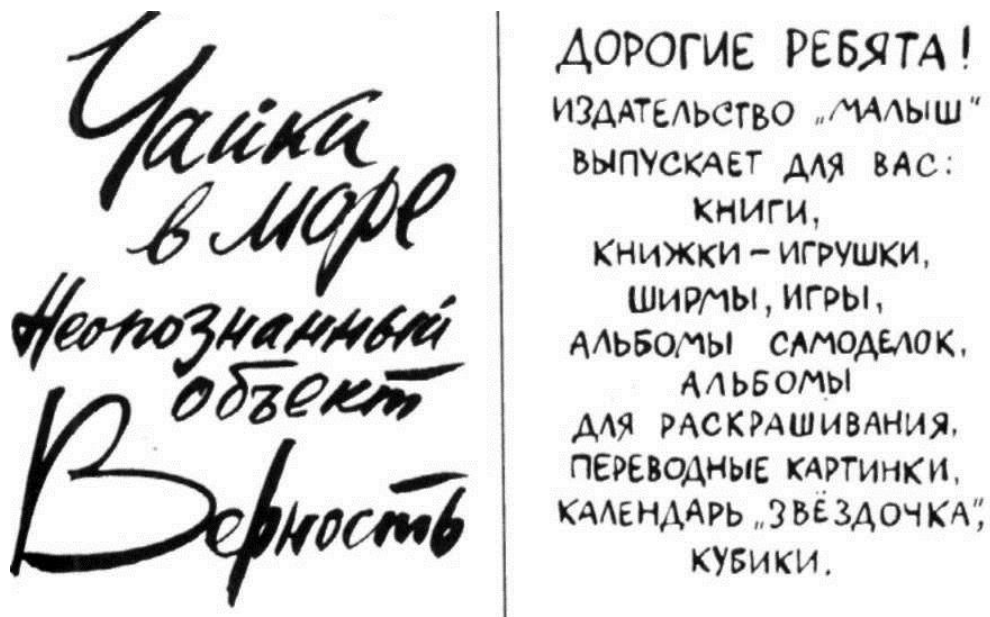 Чайки
в море
Неопознанный
объект
Верность
ДОРОГИЕ РЕБЯТА!
ИЗДАТЕЛЬСТВО „МАЛЫШ“
ВЫПУСКАЕТ ДЛЯ ВАС:
КНИГИ,
КНИЖКИ – ИГРУШКИ,
ШИРМЫ, ИГРЫ,
АЛЬБОМЫ САМОДЕЛОК,
АЛЬБОМЫ
ДЛЯ РАСКРАШИВАНИЯ,
ПЕРЕВОДНЫЕ КАРТИНКИ,
КАЛЕНДАРЬ „ЗВЁЗДОЧКА“,
КУБИКИ.